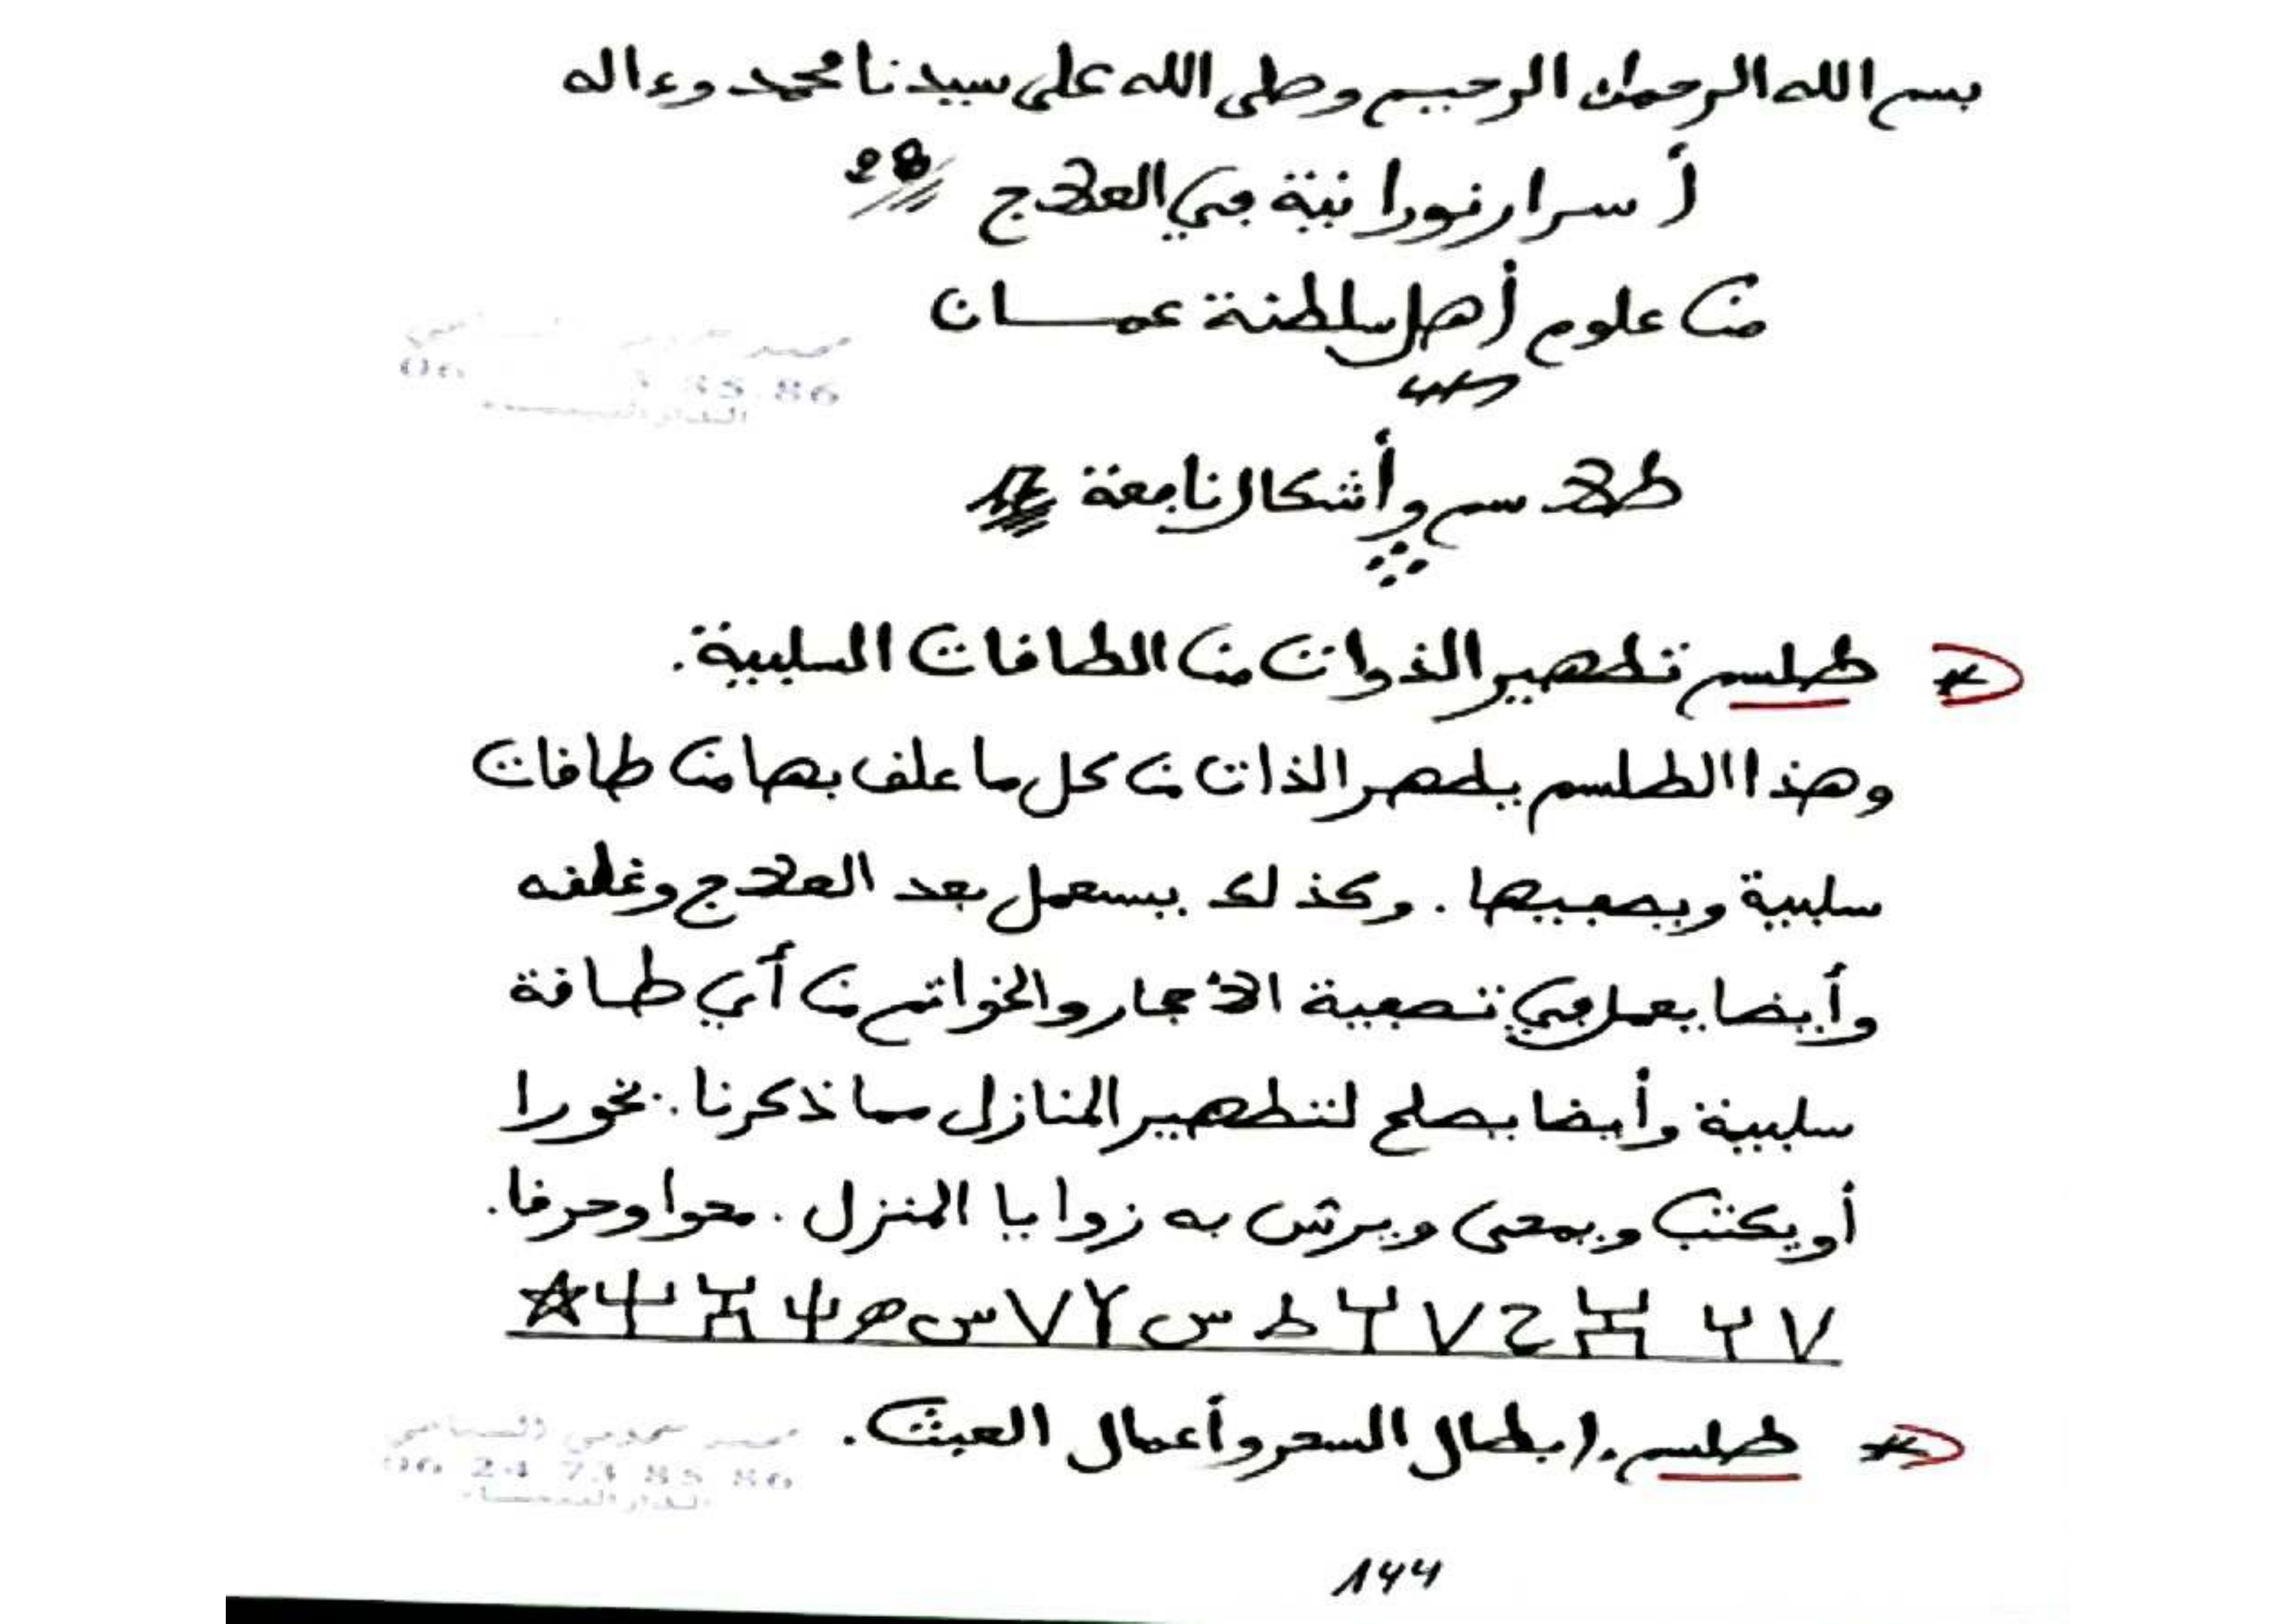 بسم الله الرحمان الرحيم وصلى الله على سيدنا محمد وءاله
أسرار نورانية في العلاج 28
من علوم أهل سلطنة عمان
طلاسم وأشكال نافعة 17
طلسم تطهير الذوات من الطاقات السلبية.
وهذا الطلسم يطهر الذات من كل ما علق بها من طاقات
سلبية ويصفيها. وكذلك يستعمل بعد العلاج وغلقه
وأيضا يعمل في تصفية الأحجار والخواتم من أي طاقة
سلبية وأيضا يصلح لتطهير المنازل مما ذكرنا. بخورا
أو يكتب ويمحى ويرش به زوايا المنزل. محوا وحرقا.
طلسم. إبطال السحر وأعمال العبث.
06 24 73 85 86
144